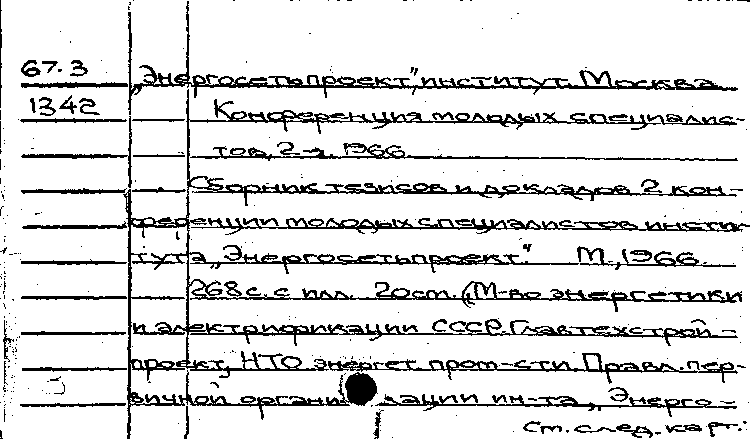 67.3 „Энергосетьпроект“, институт. Москва.
1342 Конференция молодых специалис-
тов, 2-я. 1966.
Сборник тезисов и докладов 2 кон-
ференции молодых специалистов инсти-
тута „Энергосетьпроект“. М., 1966.
268 с. с илл. 20 см. (М-во энергетики
и электрификации СССР. Главтехстрой-
проект, НТО энергет. пром-сти. Правл. пер-
вичной ин-та „Энерго-
См. след. карт.